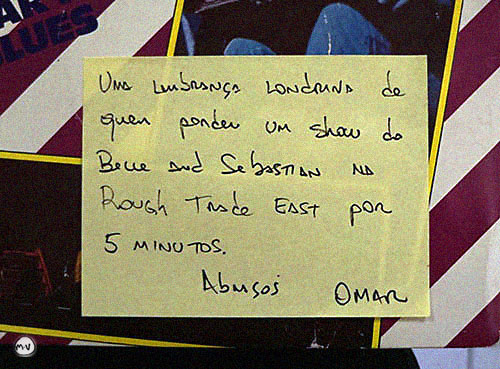 BLUES
Uma lembrança londrina de
quem perdeu um show do
Belle and Sebastian na
Rough Trade East por
5 minutos.
Abraços Omar
MV